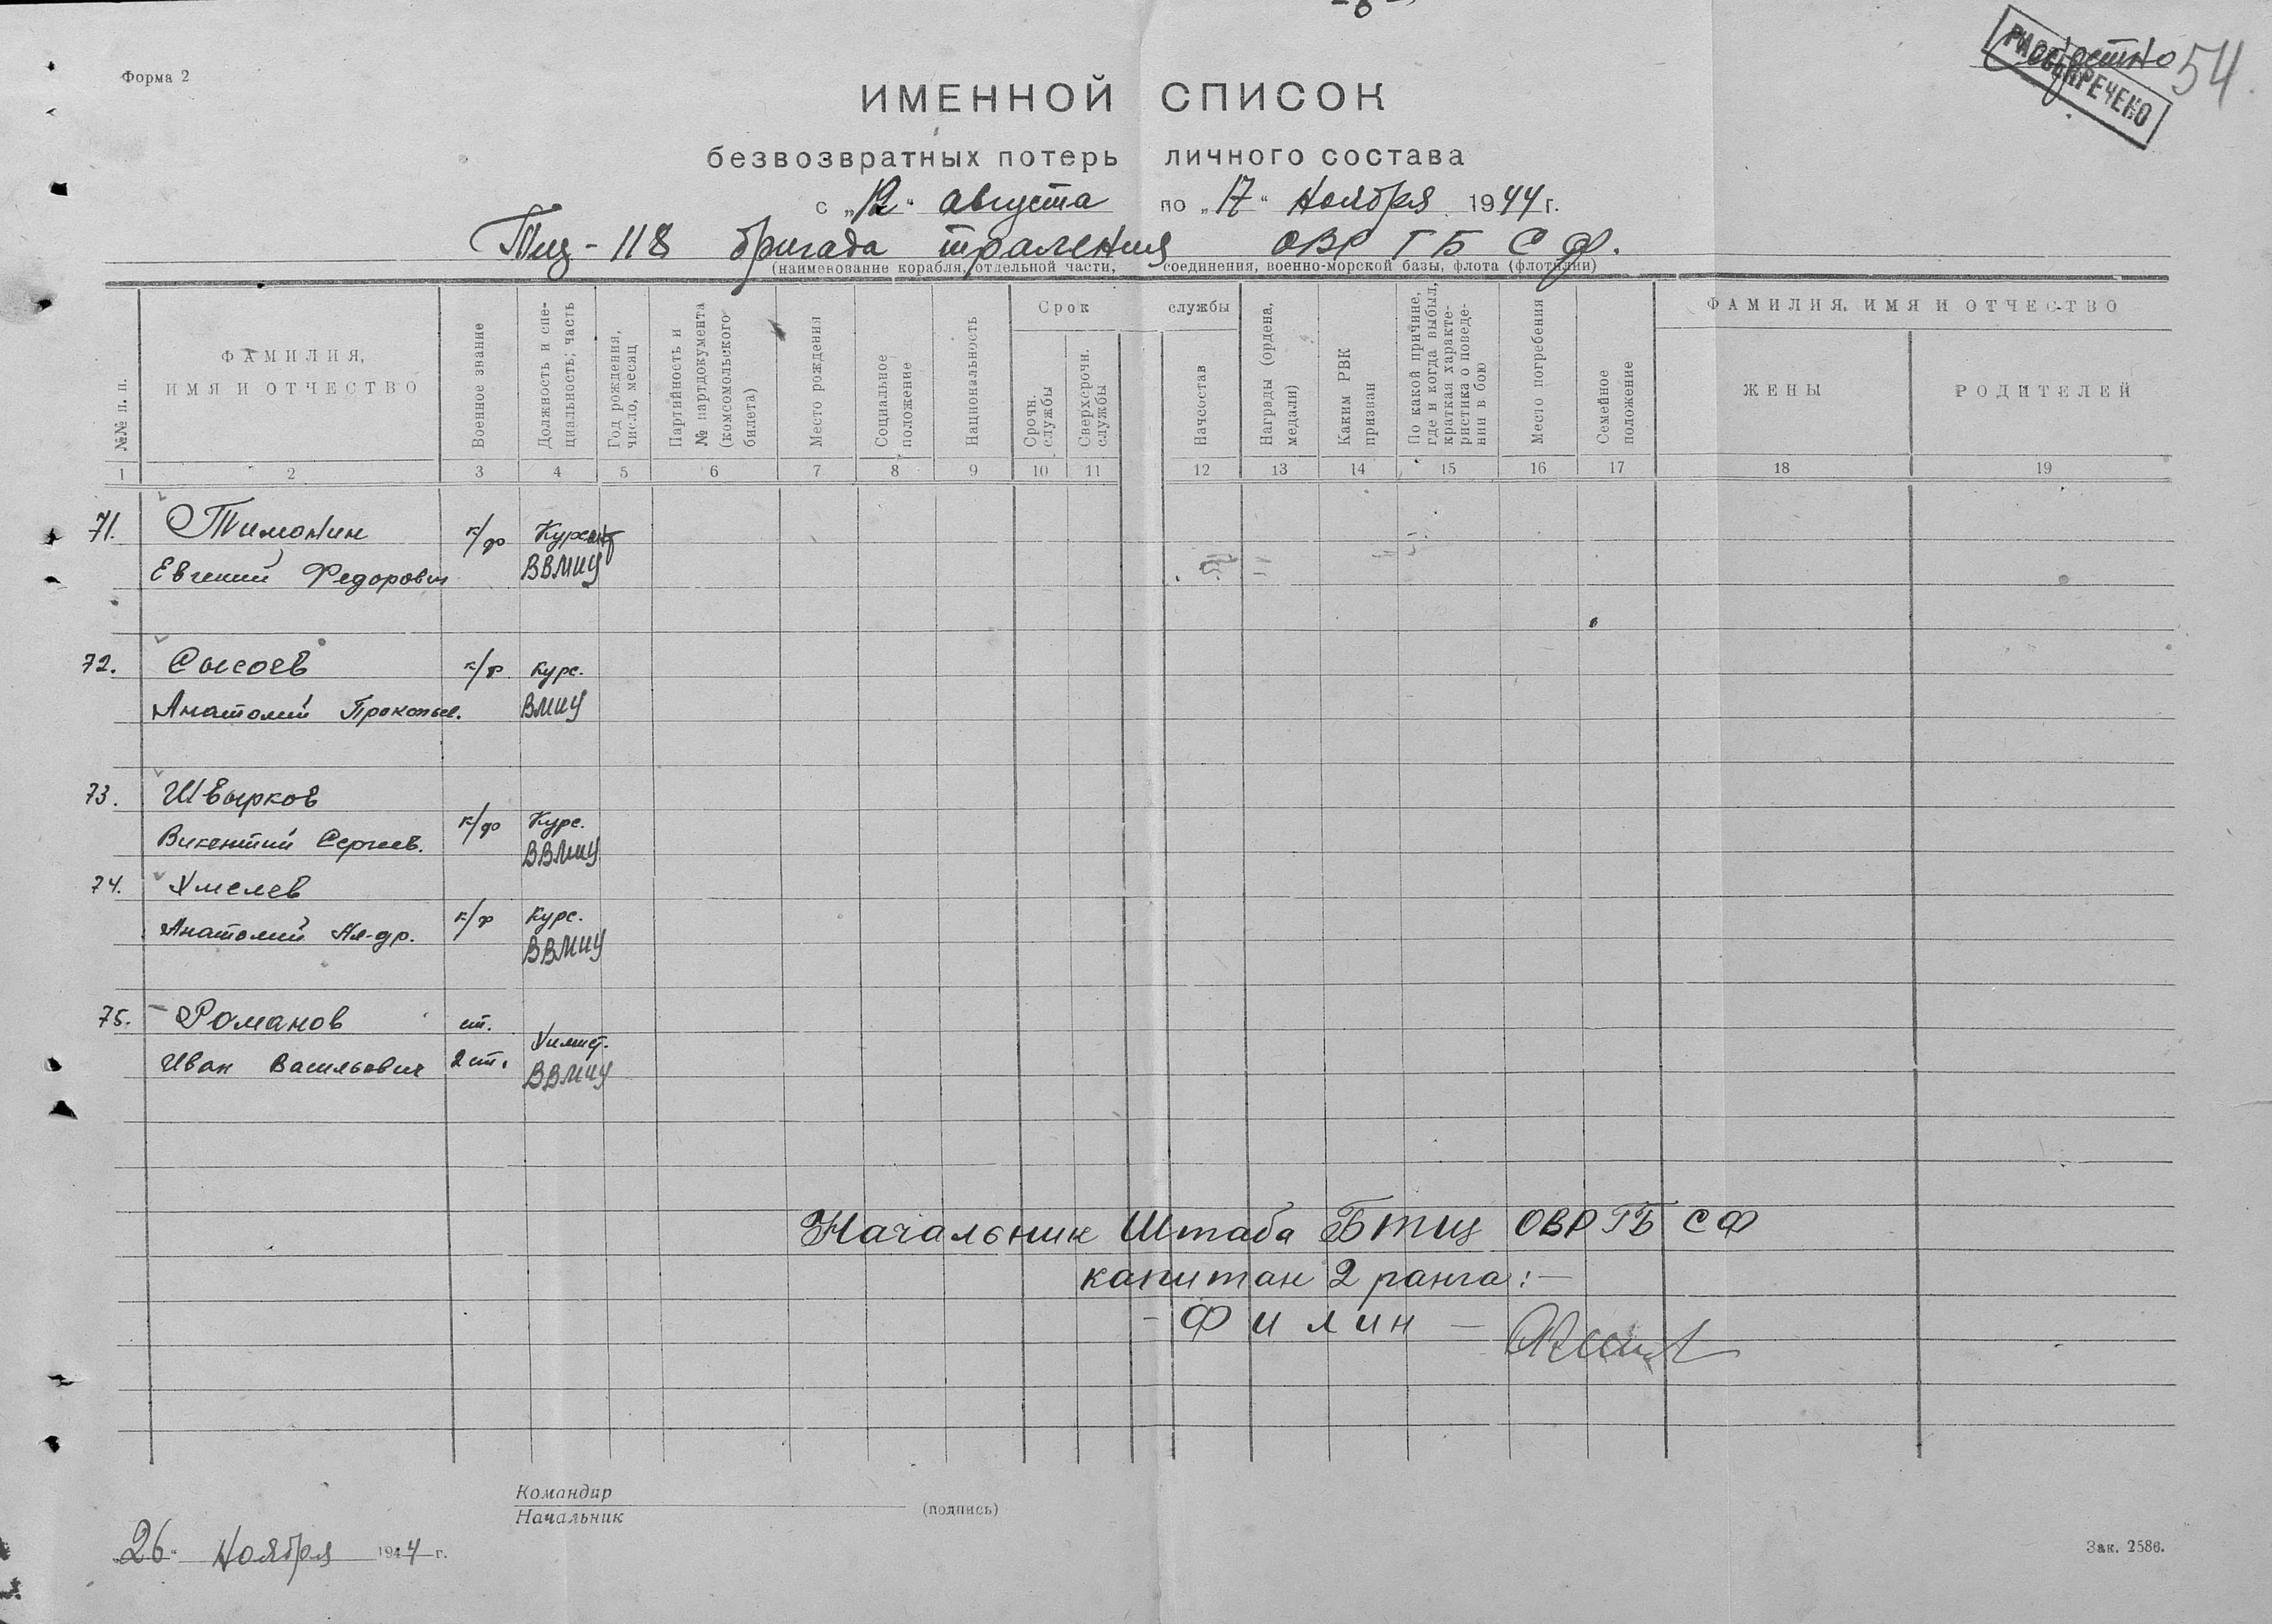 - 8 -
Форма 2
Секретно
РАССЕКРЕЧЕНО
54.
ИМЕННОЙ СПИСОК
безвозвратных потерь личного состава
с „12“ августа по „17“ Ноября 1944 г.
Тщ-118 бригада траления ОВР ГБ СФ.
(наименование корабля, отдельной части, соединения, военно-морской базы, флота (флотилии)
№№ п. п.
ФАМИЛИЯ,
ИМЯ И ОТЧЕСТВО
Военное звание
Должность и спе-
циальность; часть
Год рождения,
число, месяц
Партийность и
№ партдокумента
(комсомольского
билета)
Место рождения
Социальное
положение
Национальность
Срок службы
Срочн.
службы
Сверхсрочн.
службы
Начсостав
Награды (ордена,
медали)
Каким РВК
призван
По какой причине,
где и когда выбыл,
краткая характе-
ристика о поведе-
нии в бою
Место погребения
Семейное
положение
ФАМИЛИЯ, ИМЯ И ОТЧЕСТВО
ЖЕНЫ
РОДИТЕЛЕЙ
1 2 3 4 5 6 7 8 9 10 11 12 13 14 15 16 17 18 19
71. Тимонин к/ф Курсант
Евгений Федорович ВВМИУ
72. Сысоев к/ф Курс.
Анатолий Прокопьев. ВМИУ
73. Швырков
к/ф Курс.
Викентий Сергеев. ВВМИУ
74. Хмелев
к/ф Курс.
Анатолий Ал-др. ВВМИУ
75. Романов ст.
Химист.
Иван Васильевич 2 ст. ВВМИУ
Начальник Штаба БТЩ ОВР ГБ СФ
капитан 2 ранга:-
- Филин -
Командир
Начальник
(подпись)
„26“ Ноября 1944 г.
Зак. 2586.